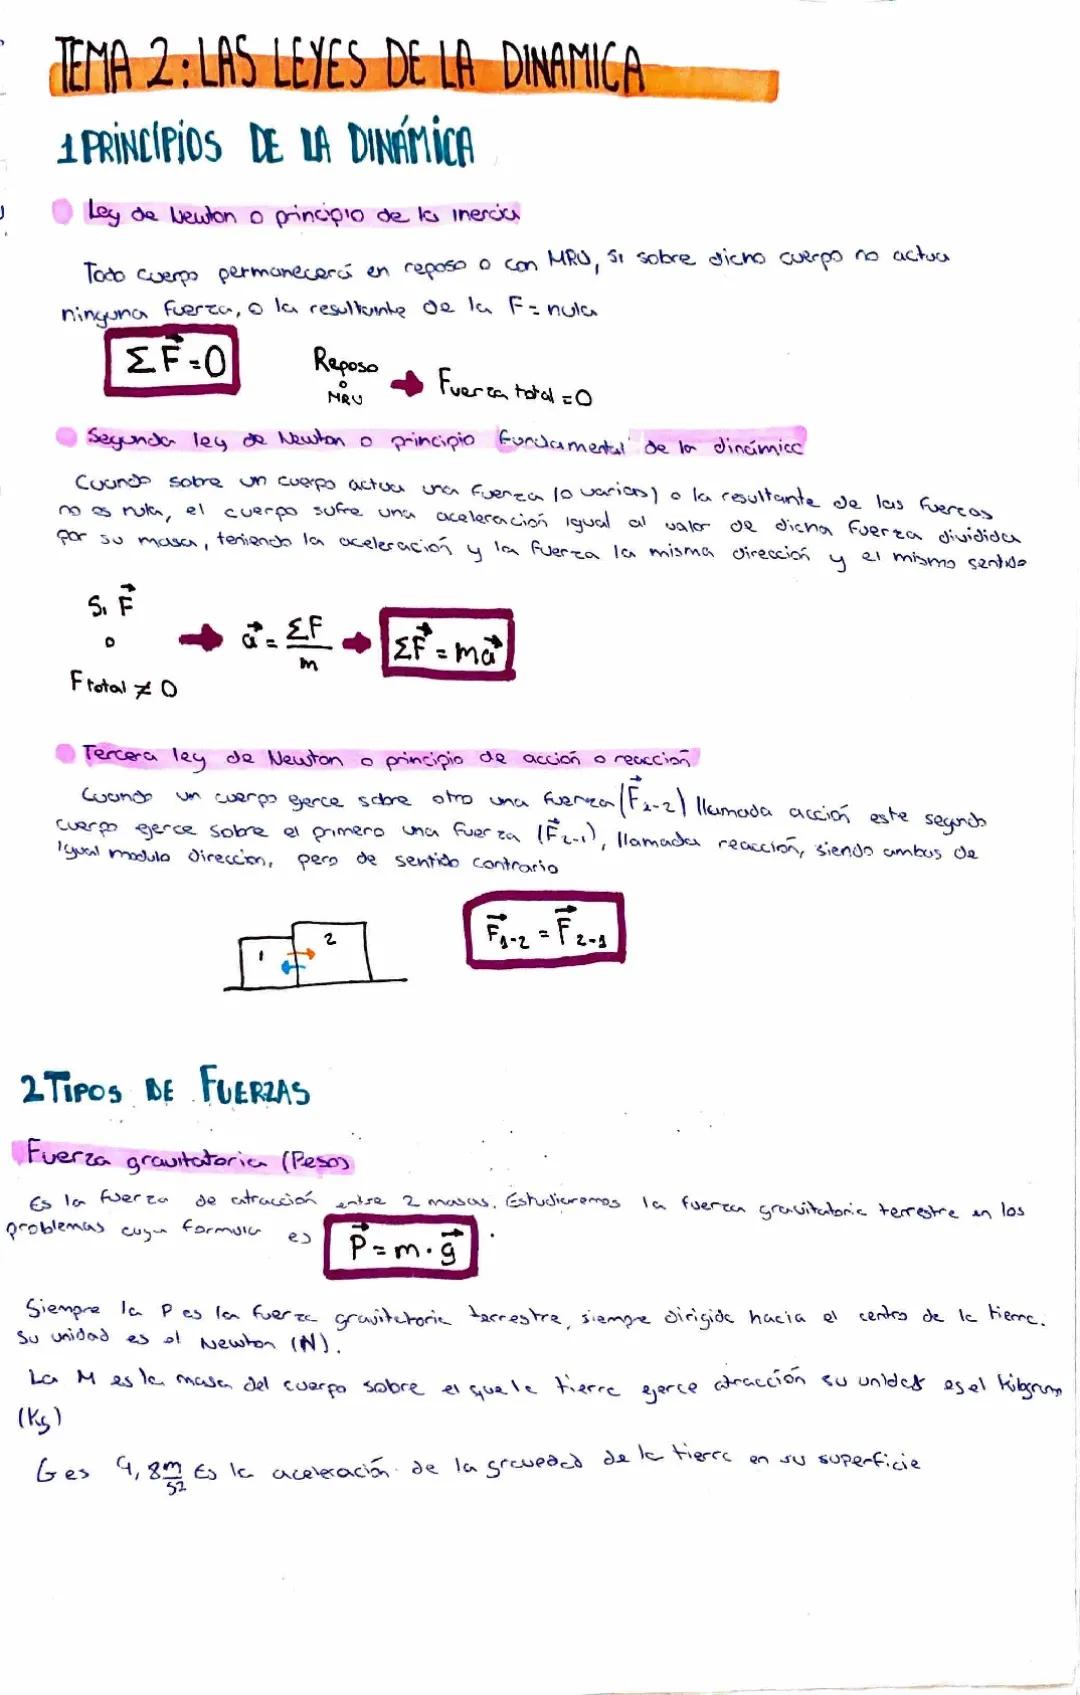 TEMA 2: LAS LEYES DE LA DINAMICA
1 PRINCIPIOS DE LA DINÁMICA
Ley de Newton o principio de la inercia
Todo cuerpo permanecerá en reposo o con MRU, si sobre dicho cuerpo no actua
ninguna fuerza, o la resultante de la F = nula
ΣF⃗ = 0
Reposo
o
MRU
Fuerza total = 0
Segunda ley de Newton o principio fundamental de la dinámica
Cuando sobre un cuerpo actua una fuerza (o varias) o la resultante de las fuercas
no es nula, el cuerpo sufre una aceleración igual al valor de dicha fuerza dividida
por su masa, teniendo la aceleración y la fuerza la misma dirección y el mismo sentido
Si F⃗
o
F total ≠ 0
a⃗ = ΣF/m
ΣF⃗ = ma⃗
Tercera ley de Newton o principio de acción o reacción
Cuando un cuerpo ejerce sobre otro una fuerza (F⃗1-2) llamada acción este segundo
cuerpo ejerce sobre el primero una fuerza (F⃗2-1), llamada reacción, siendo ambas de
igual modulo dirección, pero de sentido contrario
1 2
F⃗1-2 = F⃗2-1
2 TIPOS DE FUERZAS
Fuerza gravitatoria (Peso)
Es la fuerza de atracción entre 2 masas. Estudiaremos la fuerza gravitatoria terrestre en los
problemas cuya formula es P⃗ = m · g⃗ .
Siempre la P es la fuerza gravitatoria terrestre, siempre dirigida hacia el centro de la tierra.
Su unidad es el Newton (N).
La M es la masa del cuerpo sobre el que la tierra ejerce atracción su unidad es el kilogramo
(Kg)
G es 9,8 m/s2 Es la aceleración de la gravedad de la tierra en su superficie